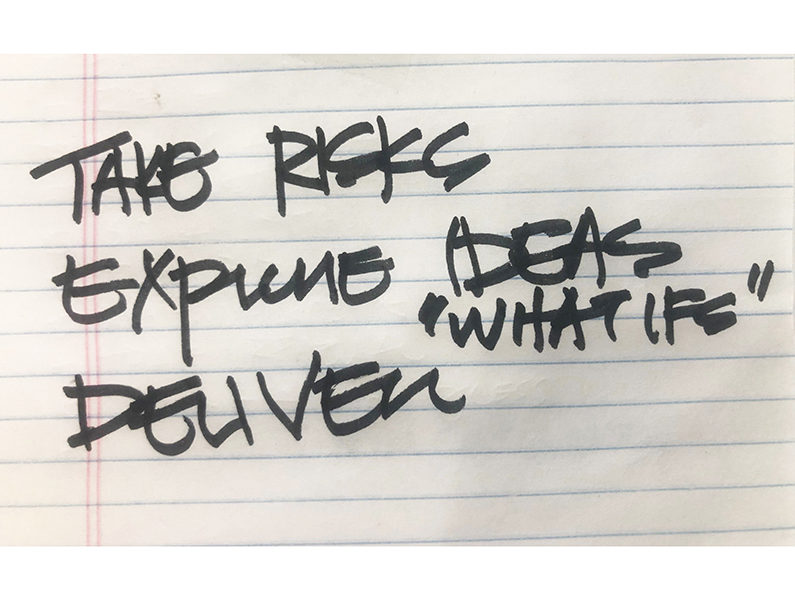 TAKE RISKS
EXPLORE IDEAS
"WHAT IFS"
DELIVER